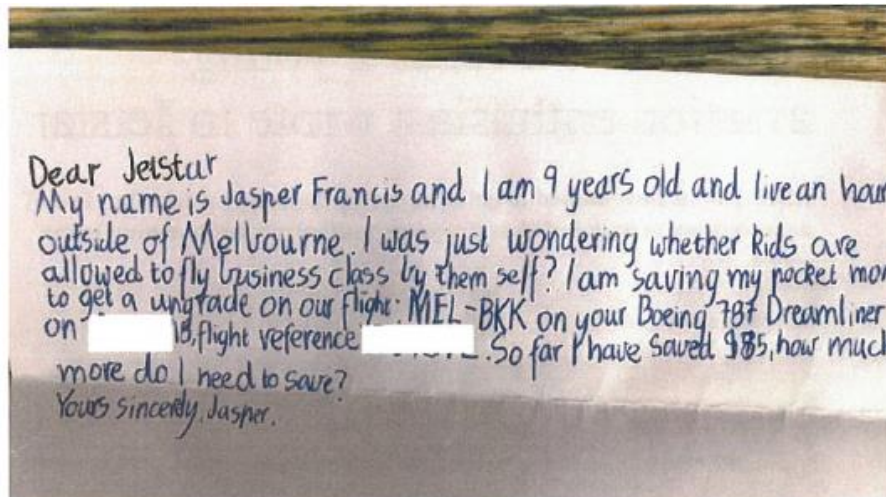 Dear Jetstar
My name is Jasper Francis and I am 9 years old and live an hour
outside of Melbourne. I was just wondering whether kids are
allowed to fly business class by them self? I am saving my pocket mon
to get a ungrade on our flight: MEL-BKK on your Boeing 787 Dreamliner
on 18, flight reference . So far I have saved $85, how much
more do I need to save?
Yours sincerly, Jasper.